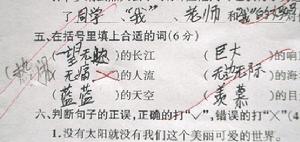 了同学、"我"、老师和
五、在括号里填上合适的词(6分)
(望无边)的长江 (巨大
(热闹 无穷)的人流 (无边无际)的海
(蓝蓝)的天空 (羡慕)的目
六、判断句子的正误,正确的打"✓",错误的打"×"(4
1.没有太阳就没有我们这个美丽可爱的世界。